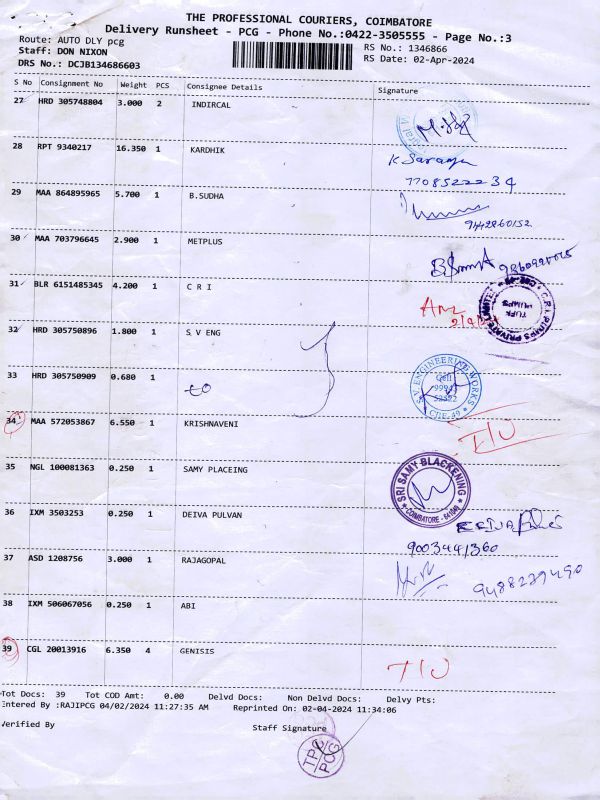 THE PROFESSIONAL COURIERS, COIMBATORE
Delivery Runsheet - PCG - Phone No.:0422-3505555 - Page No.:3
Route: AUTO DLY pcg
Staff: DON NIXON
DRS No.: DCJB134686603
RS No.: 1346866
RS Date: 02-Apr-2024
S No Consignment No Weight PCS Consignee Details Signature
27 HRD 305748804 3.000 2 INDIRCAL
28 RPT 9340217 16.350 1 KARDHIK
K Saranya
7708522234
29 MAA 864895965 5.700 1 B.SUDHA
9442860152
30 MAA 703796645 2.900 1 METPLUS
31 BLR 6151485345 4.200 1 C R I
C.R.I. PUMPS PRIVATE LIMITED
32 HRD 305750896 1.800 1 S V ENG
33 HRD 305750909 0.680 1
S.V. ENGINEERING WORKS
Cell
CBE-49
34 MAA 572053867 6.550 1 KRISHNAVENI
I/O
35 NGL 100081363 0.250 1 SAMY PLACEING
SRI SAMY BLACKENING
COIMBATORE - 641049
36 IXM 3503253 0.250 1 DEIVA PULVAN
9003441360
37 ASD 1208756 3.000 1 RAJAGOPAL
9488239490
38 IXM 506067056 0.250 1 ABI
39 CGL 20013916 6.350 4 GENISIS
Tot Docs: 39 Tot COD Amt: 0.00 Delvd Docs: Non Delvd Docs: Delvy Pts:
Entered By :RAJIPCG 04/02/2024 11:27:35 AM Reprinted On: 02-04-2024 11:34:06
Verified By Staff Signature
TPC
PCG